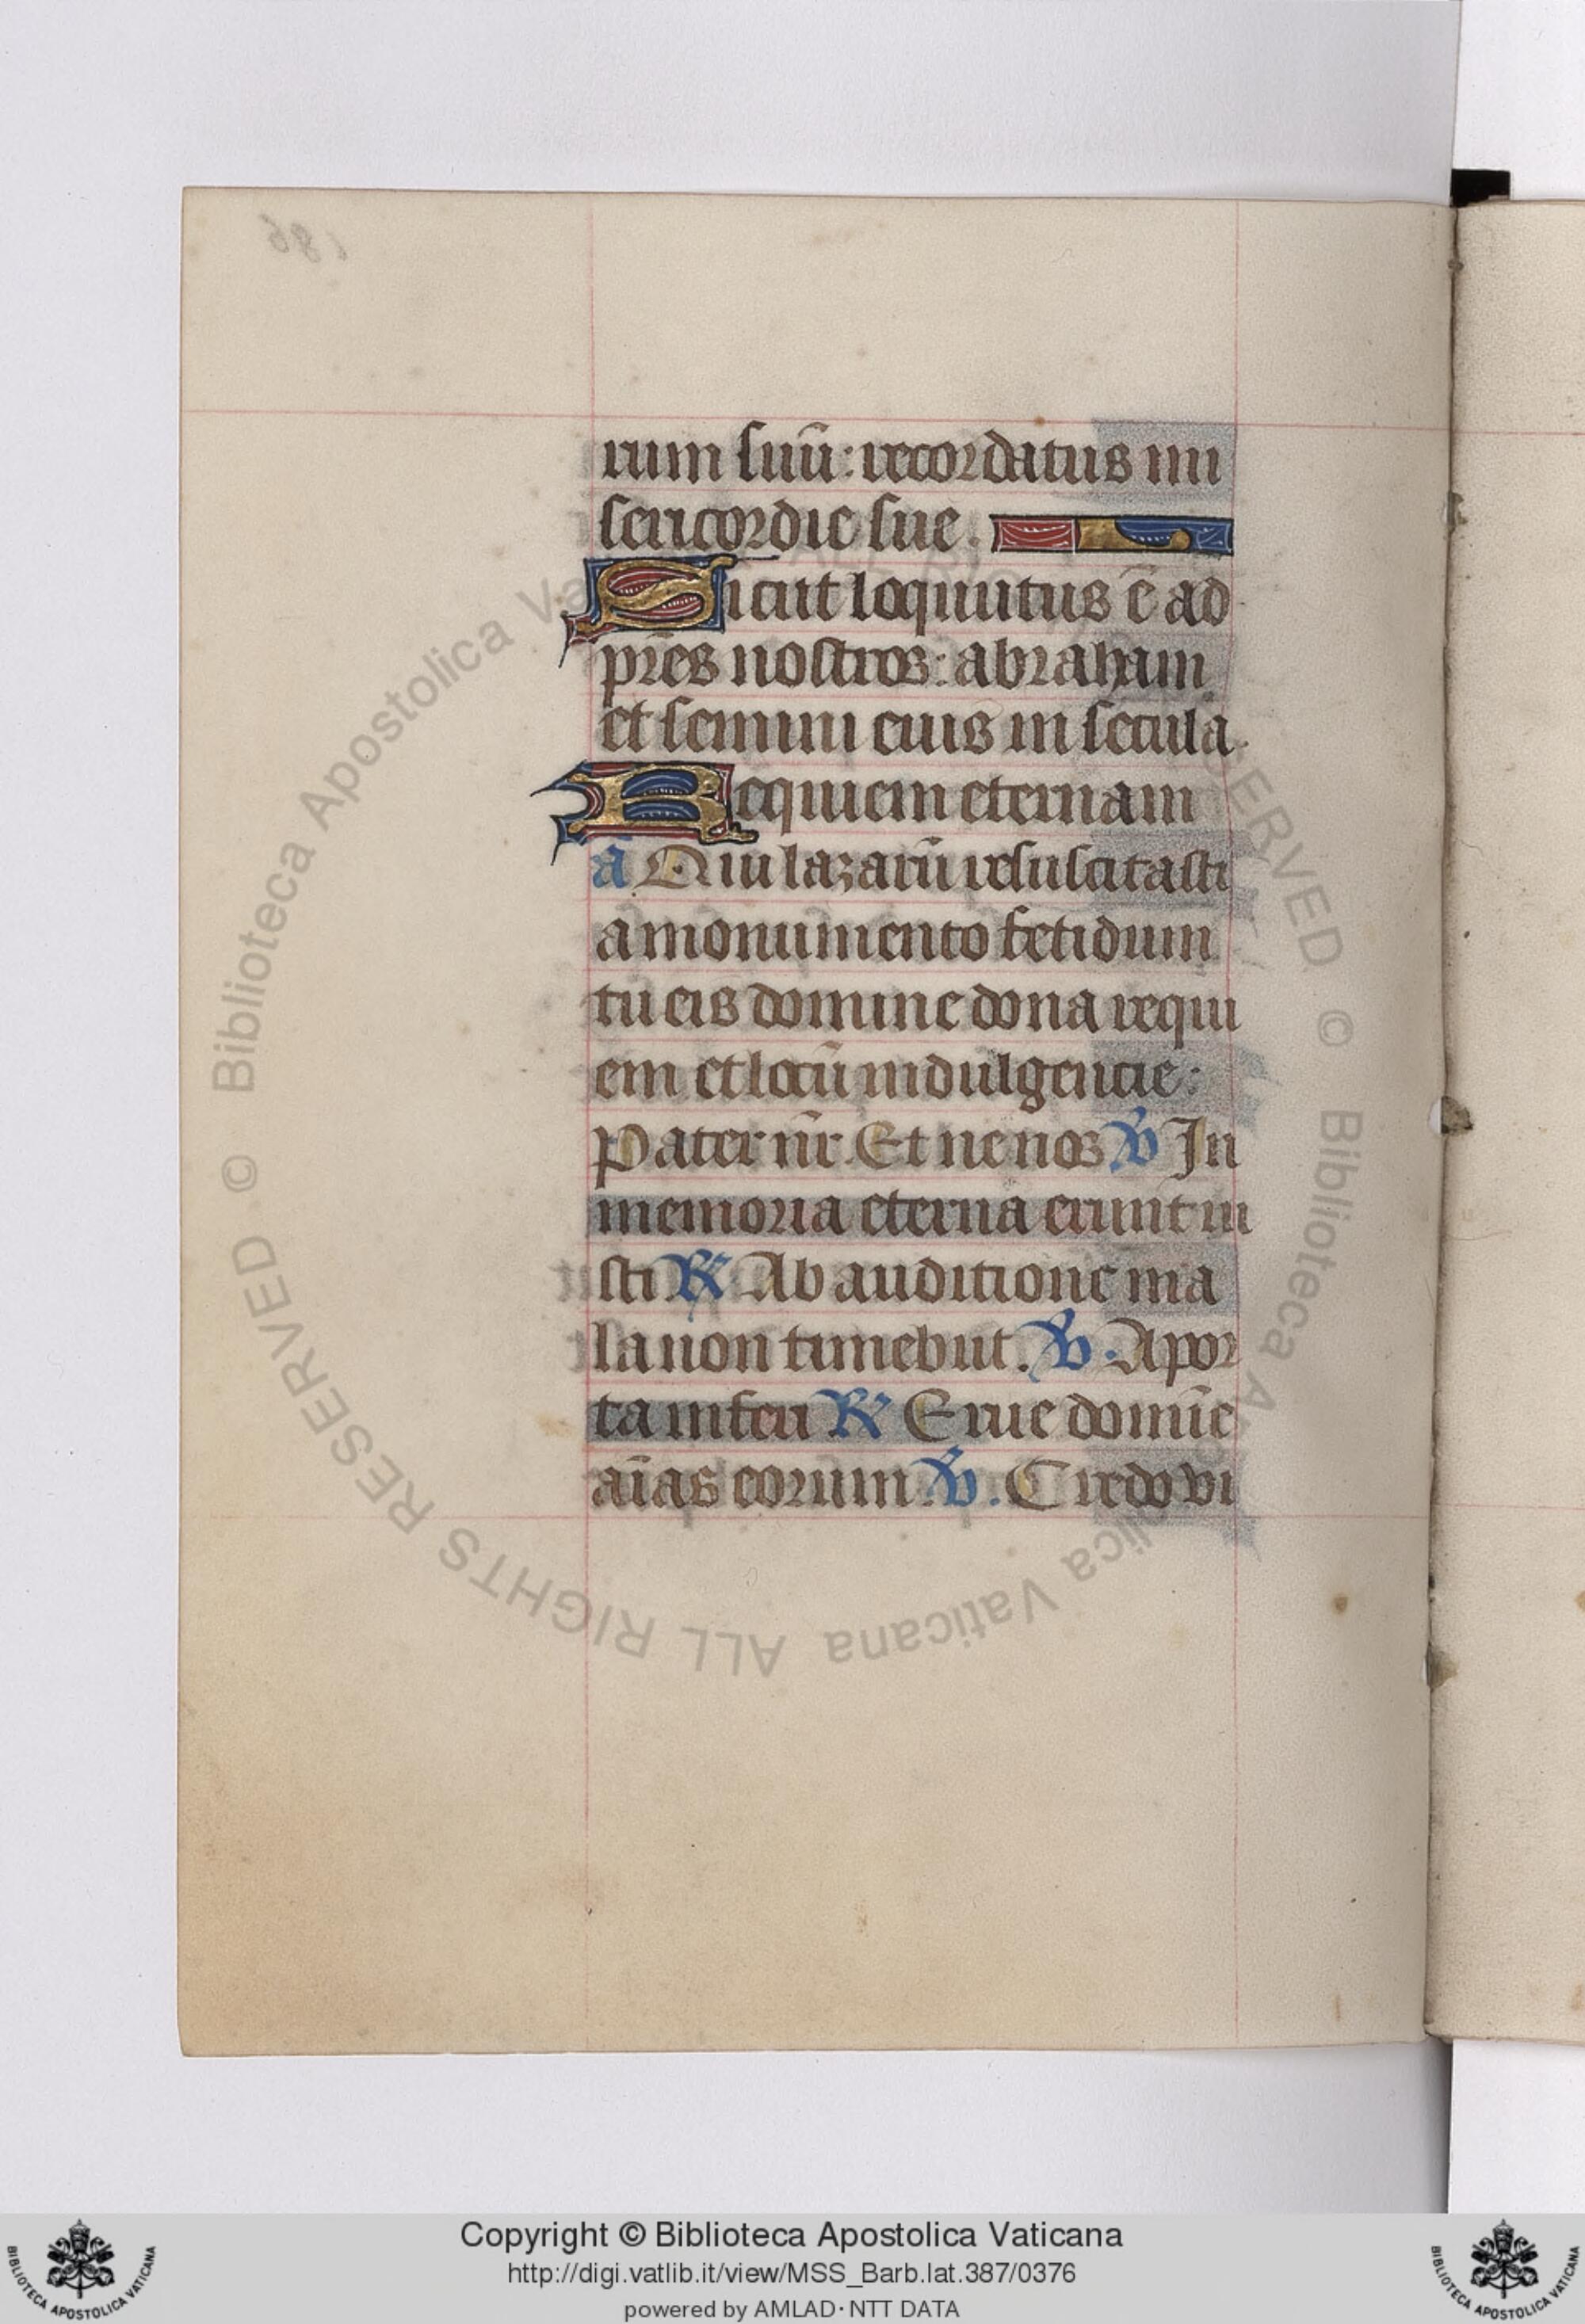 rum suū: recordatus mi
sericordie sue.
Sicut loquutus ē ad
pr̄es nostros: abraham
et semini eius in secula.
Requiem eternam
ā Qui lazarū resuscitasti
a monumento fetidum
tu eis domine dona requi
em et locū indulgentie:
Pater nr̄. Et ne nos ℣ In
memoria eterna erunt iu
sti ℟ Ab auditione ma
la non timebūt. ℣. A por
ta inferi ℟ Erue domīe
aīas eorum. ℣. Credo vi
186
© Biblioteca Apostolica Vaticana ALL RIGHTS RESERVED
Copyright © Biblioteca Apostolica Vaticana
http://digi.vatlib.it/view/MSS_Barb.lat.387/0376
powered by AMLAD·NTT DATA
BIBLIOTECA APOSTOLICA VATICANA
BIBLIOTECA APOSTOLICA VATICANA